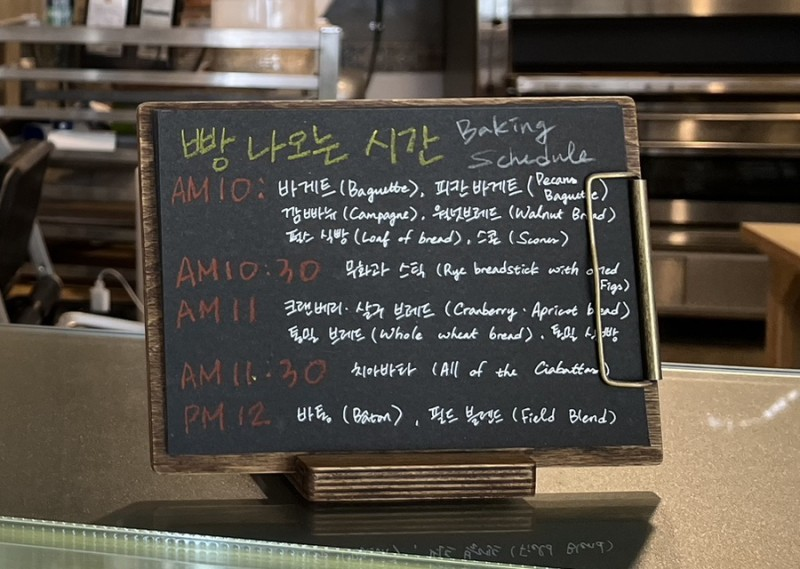 빵 나오는 시간 Baking Schedule
AM 10: 바게트 (Baguette), 피칸 바게트 (Pecans Baguette)
깜빠뉴 (Campagne), 월넛브레드 (Walnut Bread)
식빵 (Loaf of bread), 스콘 (Scones)
AM 10:30 무화과 스틱 (Rye breadstick with Figs)
AM 11 크랜베리·살구 브레드 (Cranberry·Apricot bread)
통밀 브레드 (Whole wheat bread), 통밀 식빵
AM 11:30 치아바타 (All of the Ciabattas)
PM 12 바통 (Baton), 필드 블렌드 (Field Blend)